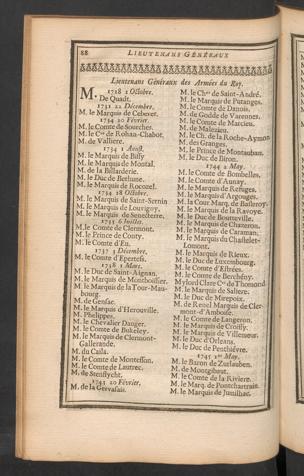 88 LIEUTENANS GÉNÉRAUX
Lieutenans Généraux des Armées du Roy.
1718 1 Octobre.
M. De Quadt.
1731 22 Décembre.
M. le Marquis de Ceberet.
1734 20 Février.
M. le Comte de Sourches.
M. le Cte de Rohan-Chabot.
M. de Valliere.
1734 1 Aoust.
M. le Marquis de Bissy
M. le Marquis de Montal.
M. de la Billarderie.
M. le Duc de Bethune.
M. le Marquis de Rocozel.
1734 18 Octobre.
M. le Marquis de Saint-Sernin
M. le Marquis de Louvigny.
M. le Marquis de Senecterre.
1735 6 Juillet.
M. le Comte de Clermont.
M. le Prince de Conty.
M. le Comte d'Eu.
1737 3 Décembre.
M. le Comte d'Epertess.
1738 1 Mars.
M. le Duc de Saint-Aignan.
M. le Marquis de Montboissier.
M. le Marquis de la Tour-Mau-
bourg.
M. de Gensac.
M. le Marquis d'Herouville.
M. Phelippes.
M. le Chevalier Danger.
M. le Comte de Bukeley.
M. le Marquis de Clermont-
Gallerande.
M. du Caila.
M. le Comte de Montesson.
M. le Comte de Lautrec.
M. de Stenflycht.
1743 20 Février.
M. de la Gervaisais.
M. le Cher de Saint-André.
M. le Marquis de Putanges.
M. le Comte de Danois.
M. de Godde de Varennes.
M. le Comte de Marcieu.
M. de Malezieu.
M. le Ch. de la Roche-Aymon
M. des Granges.
M. le Prince de Montauban.
M. le Duc de Biron.
1744 2 May.
M. le Comte de Bombelles.
M. le Comte d'Aunay.
M. le Marquis de Refuges.
M. le Marquis d'Argouges.
M. la Cour Marq. de Balleroy.
M. le Marquis de la Ravoye.
M. le Duc de Boutteville.
M. le Marquis de Chazeron.
M. le Marquis de Caraman.
M. le Marquis du Chastelet-
Lomont.
M. le Marquis de Rieux.
M. le Duc de Luxembourg.
M. le Comte d'Estrées.
M. le Comte de Bercheny.
Mylord Clare Cte de Thomond
M. le Marquis de Salieres.
M. le Duc de Mirepoix.
M. de Renel Marquis de Cler-
mont-d'Amboise.
M. le Comte de Langeron.
M. le Marquis de Croissy.
M. le Marquis de Villemeur.
M. le Duc d'Orleans.
M. le Duc de Penthièvre.
1745 1er May.
M. le Baron de Zurlauben.
M. de Montgibaut.
M. le Comte de la Riviere.
M. le Marq. de Pontchartrain.
M. le Marquis de Jumilhac.